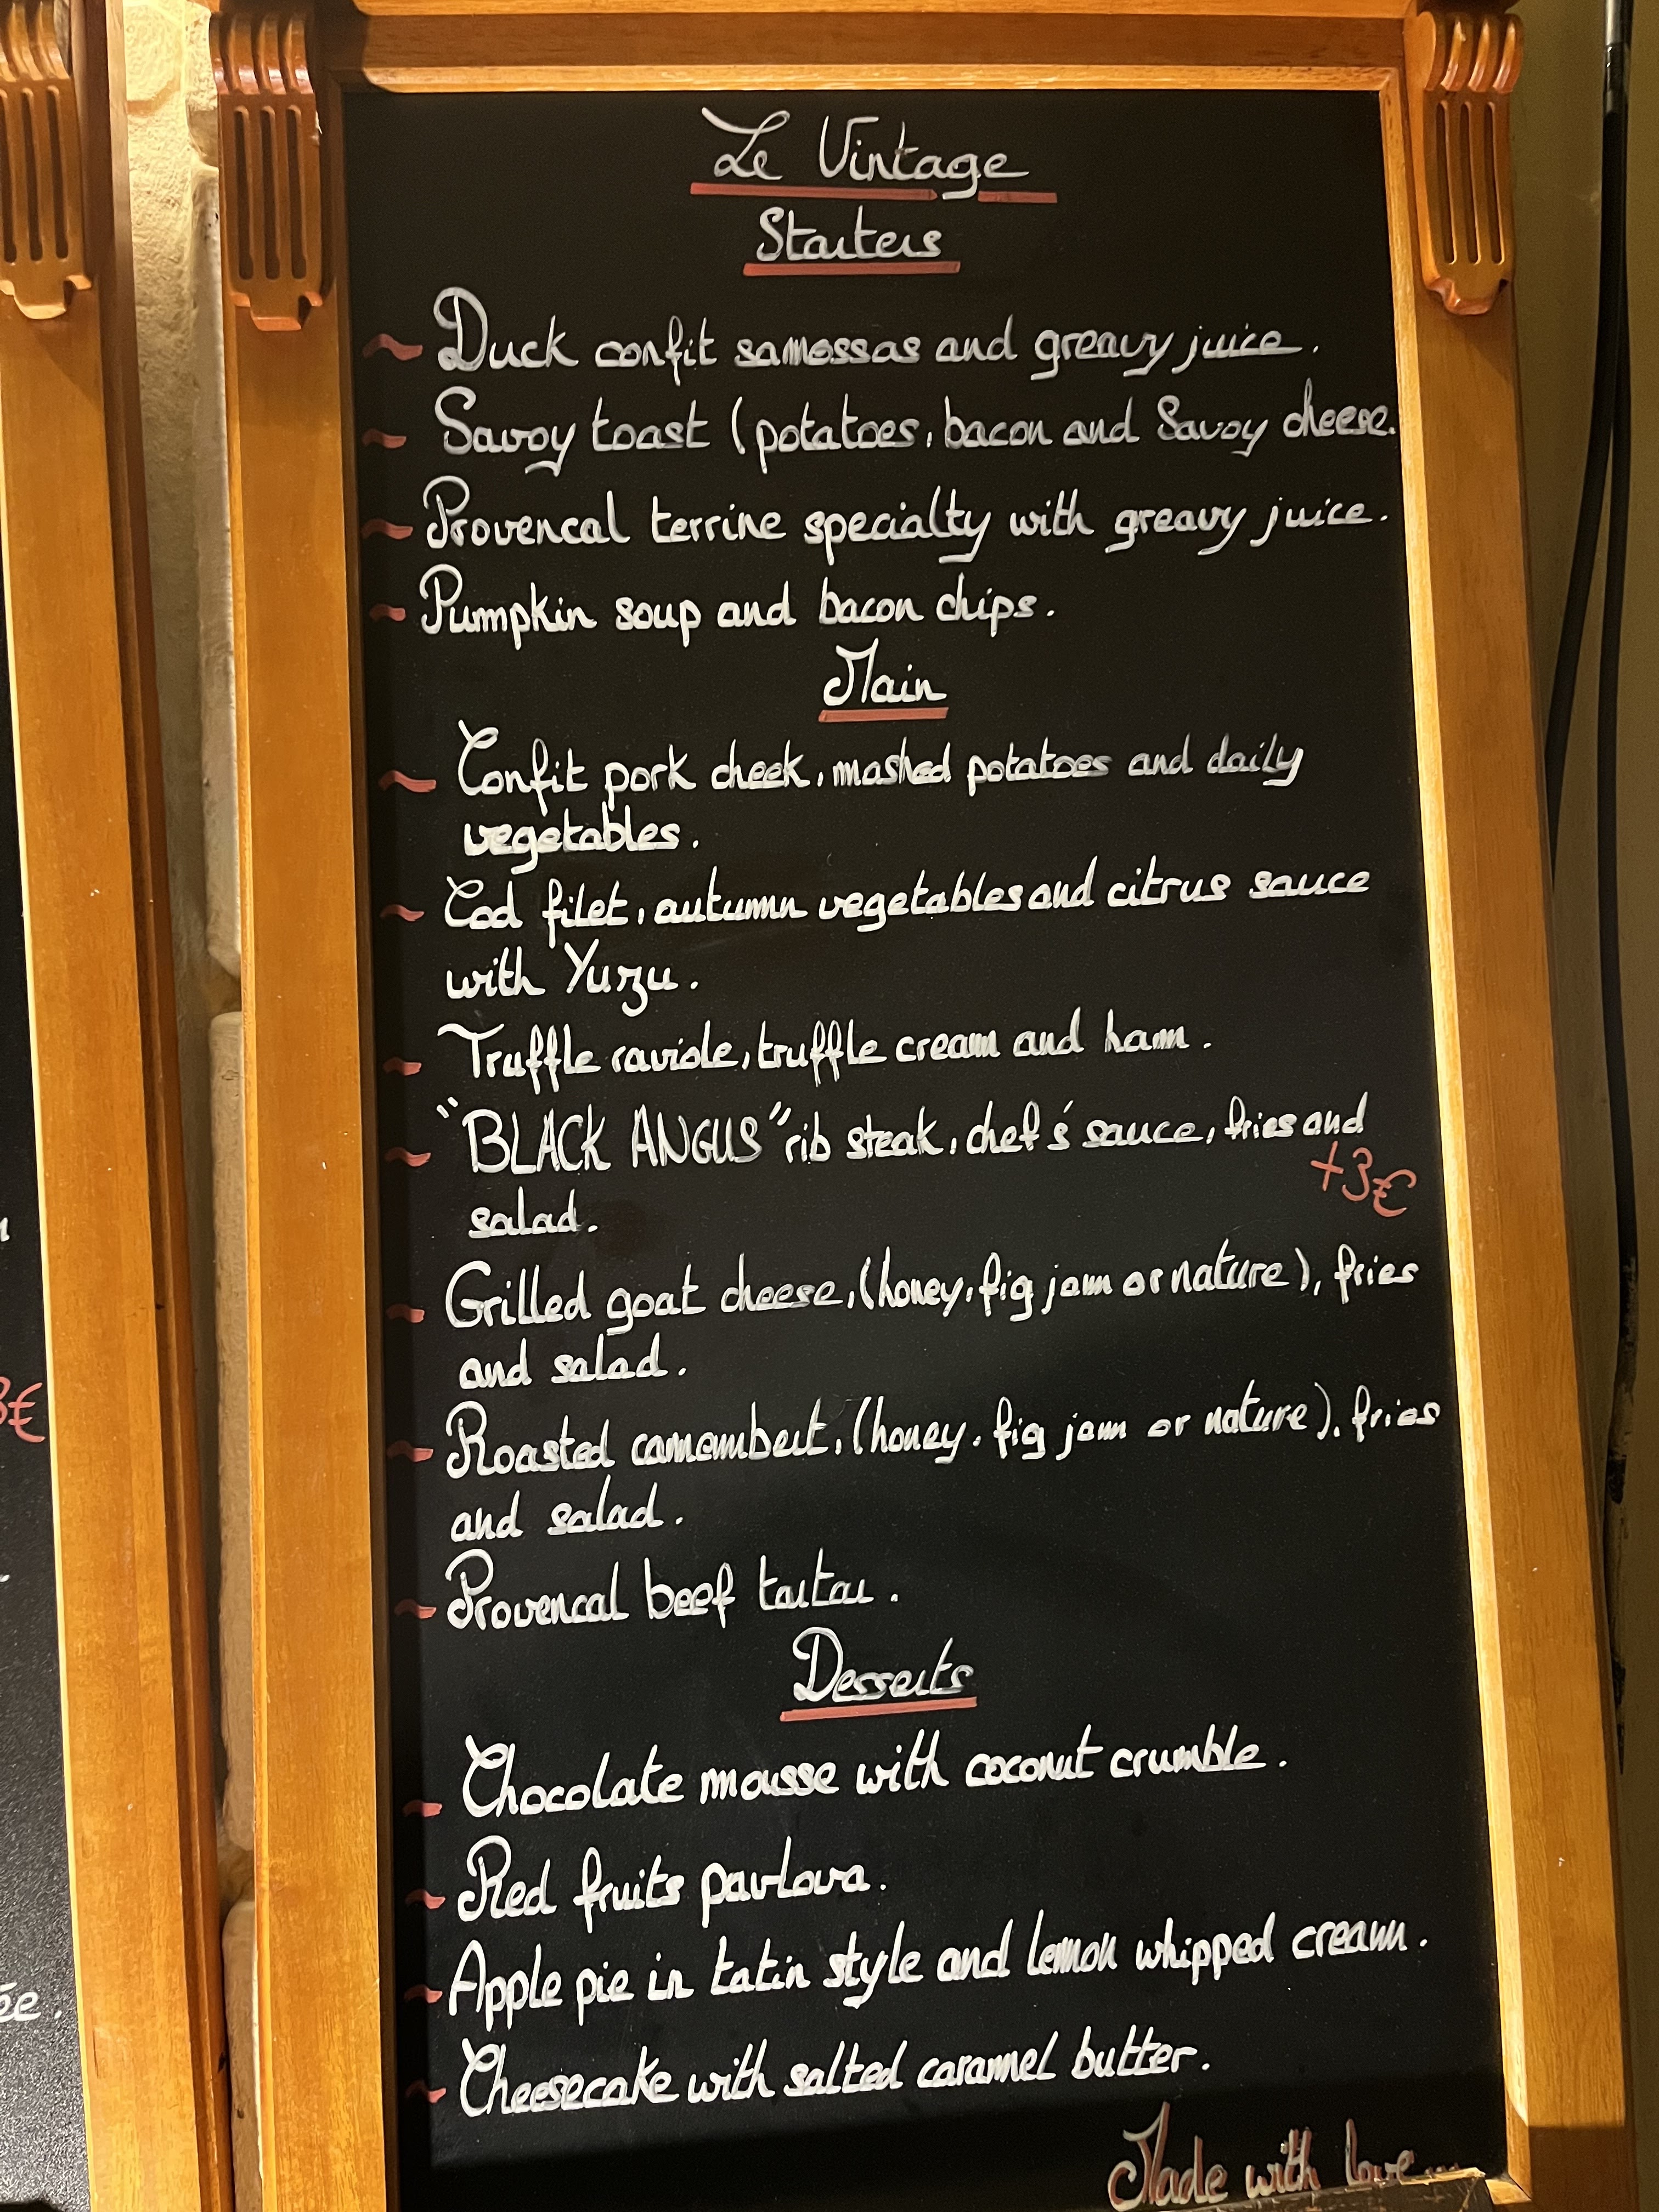 Le Vintage
Starters
~ Duck confit samossas and greavy juice.
~ Savoy toast (potatoes, bacon and Savoy cheese.
~ Provencal terrine specialty with greavy juice.
~ Pumpkin soup and bacon chips.
Main
~ Confit pork cheek, mashed potatoes and daily
vegetables.
~ Cod filet, autumn vegetables and citrus sauce
with Yuzu.
~ Truffle raviole, truffle cream and ham.
~ "BLACK ANGUS" rib steak, chef's sauce, fries and
+3€
salad.
~ Grilled goat cheese, (honey, fig jam or nature), fries
and salad.
~ Roasted camembert, (honey, fig jam or nature), fries
and salad.
~ Provencal beef tartar.
Desserts
~ Chocolate mousse with coconut crumble.
~ Red fruits pavlova.
~ Apple pie in tatin style and lemon whipped cream.
~ Cheesecake with salted caramel butter.
Made with love...
3€
ée.